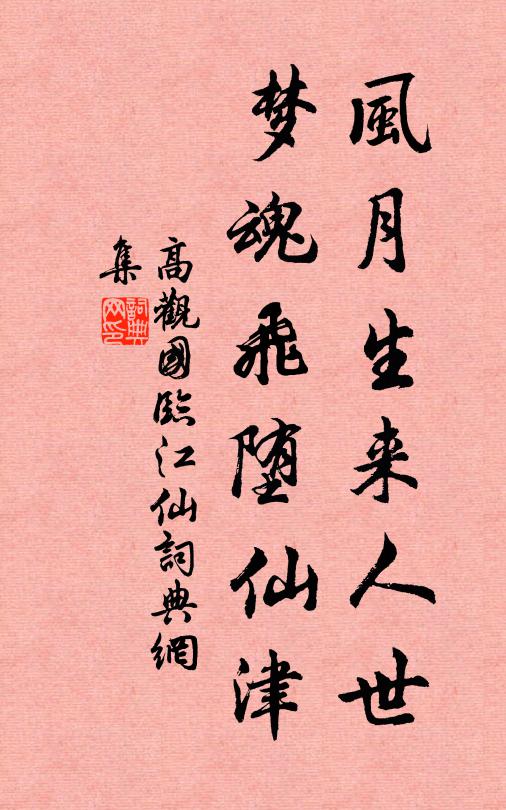 風月生来人世
梦魂飛堕仙津
高觀國臨江仙詞典網
集
詞典
网印